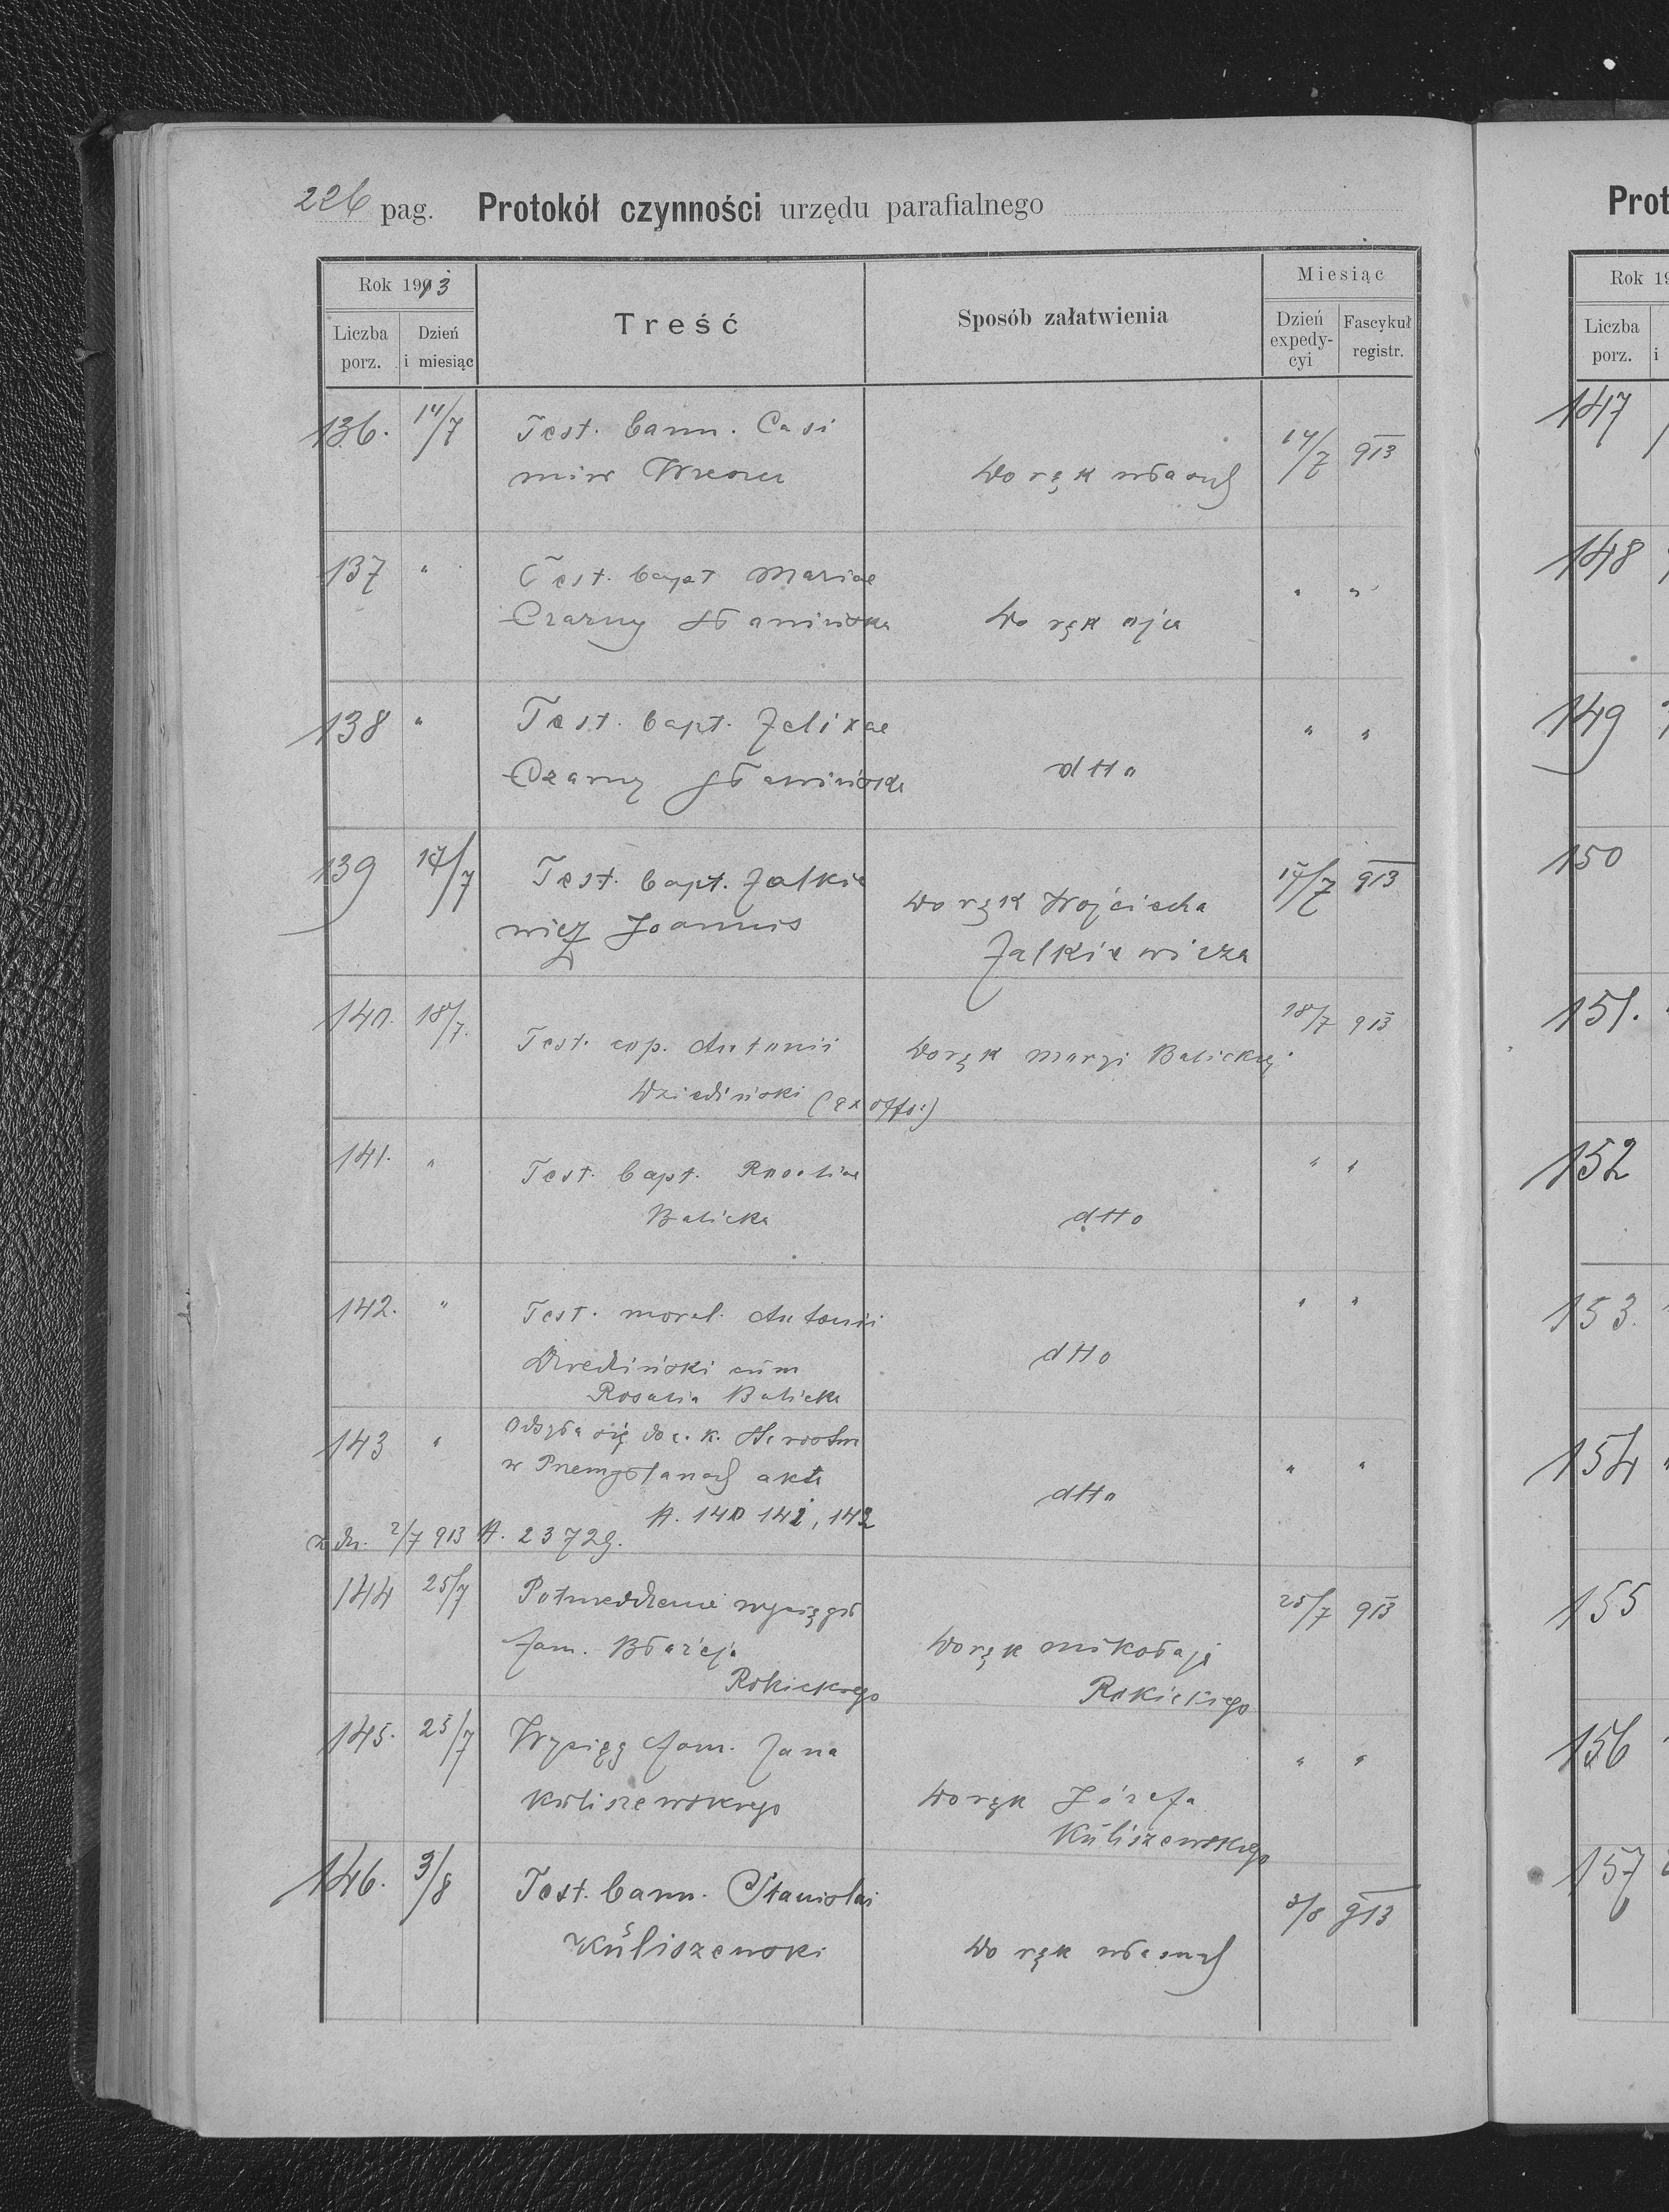 226 pag. Protokół czynności urzędu parafialnego
Rok 1913
Liczba porz.
Dzień i miesiąc
Treść
Sposób załatwienia
Miesiąc
Dzień expedy-
cyi
Fascykuł registr.
136. 14/7 Test. bann. Casi
mir do rąk własnych 14/7 913
137 " Test. bapt Mariae
Czarny Sławińska do rąk ojca " "
138 " Test. bapt. Felixae
Czarny Sławińska dtto " "
139 17/7 Test. bapt. Falkie
wicz Joannis do rąk Wojciecha
Falkiewicza 17/7 913
140. 18/7. Test. cop. Antonii
Dziedziński (ex offo:) do rąk Maryi Balickiej 18/7 913
141. " Test. bapt. Rosaliae
Balicka dtto " "
142. " Test. moral. Antonii
Dziedziński cum
Rosalia Balicka dtto " "
143 " Odsyła się do c. k. Starostwa
w Przemyślanach akta
N. 140 141, 142 dtto " "
z dn. 2/7 913 N. 23729.
144 25/7 Potwierdzenie wyciągu
fam. Błażeja
Rokickiego do rąk Mikołaja
Rokickiego 25/7 913
145. 25/7 Wyciąg fam. Jana
Kuliszewskiego do rąk Józefa
Kuliszewskiego " "
146. 3/8 Test. bann. Stanislai
Kuliszewski do rąk własnych 3/8 913
Prot
Rok 19
Liczba porz.
i
147
148
149
150
151.
152
153.
154
155
156
157